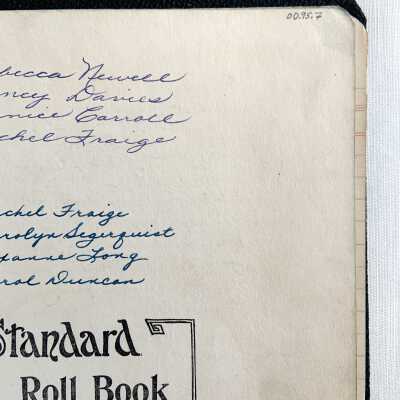 00.95.7
becca Newell
ncy Davies
nice Carroll
chel Fraige
chel Fraige
arolyn Segerquist
xanne Long
arol Duncan
Standard
Roll Book